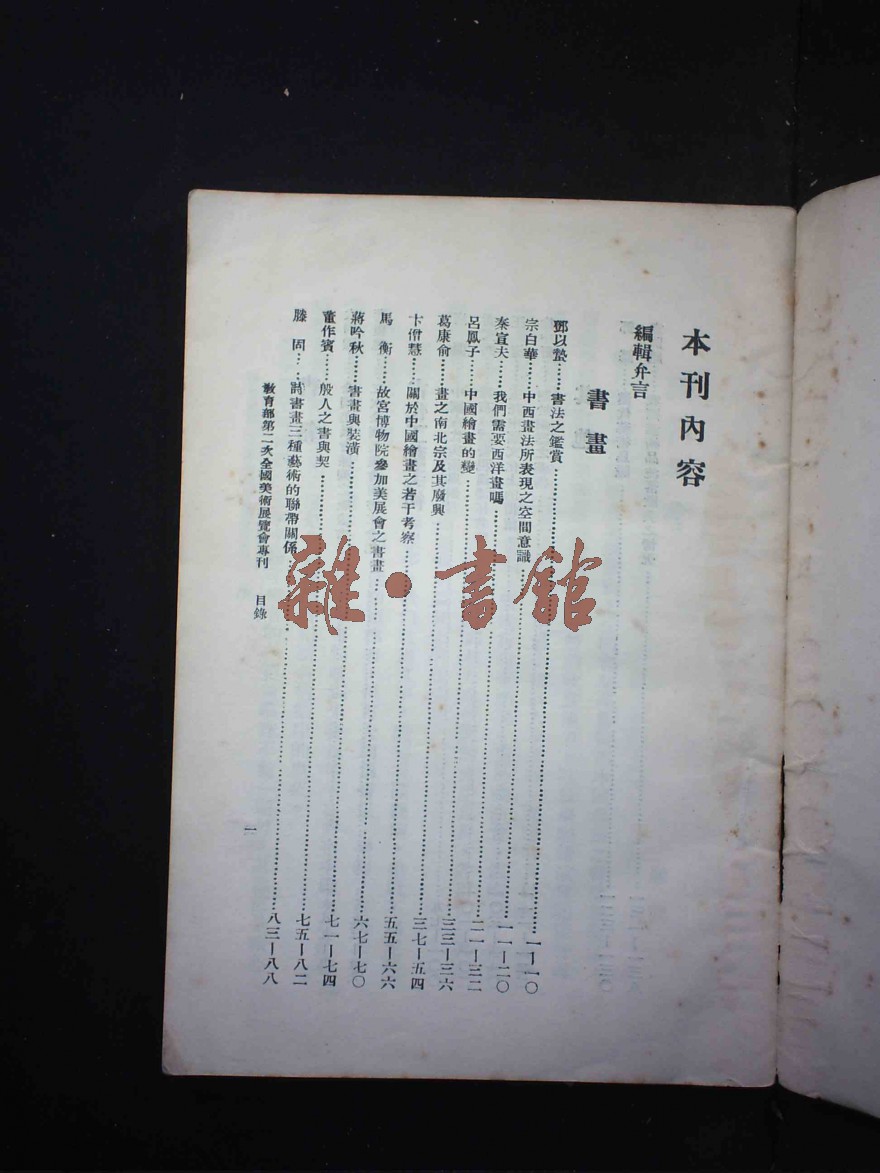 本刊內容
編輯弁言
書畫
鄧以蟄……書法之鑑賞……一—一〇
宗白華……中西畫法所表現之空間意識……一一—二〇
秦宣夫……我們需要西洋畫嗎……二一—三二
呂鳳子……中國繪畫的變……三三—三六
葛康俞……畫之南北宗及其廢興……三七—五四
卞僧慧……關於中國繪畫之若干考察……五五—六六
馬　衡……故宮博物院參加美展會之書畫……六七—七〇
蔣吟秋……書畫與裝潢……七一—七四
董作賓……殷人之書與契……七五—八二
滕　固……詩書畫三種藝術的聯帶關係……八三—八八
教育部第二次全國美術展覽會專刊　目錄
一
雜·書館